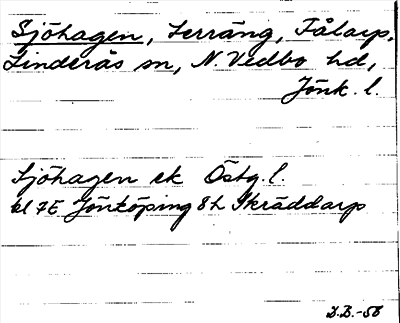 Sjöhagen, Terräng, Fålarp,
Linderås sn, N. Vedbo hd,
Jönk. l.
Sjöhagen ek Östg. l.
bl 7E Jönköping 8h Skräddarp
D.B.-56